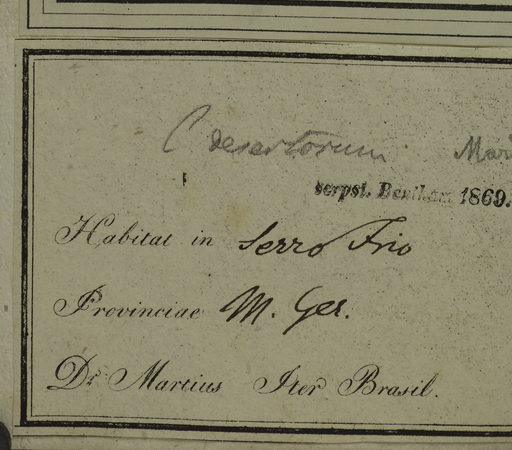 C desertorum Mar
scrpsi. Bentham 1869.
Habitat in Serro Frio
Provinciae M. Ger.
Dr Martius Iter Brasil.